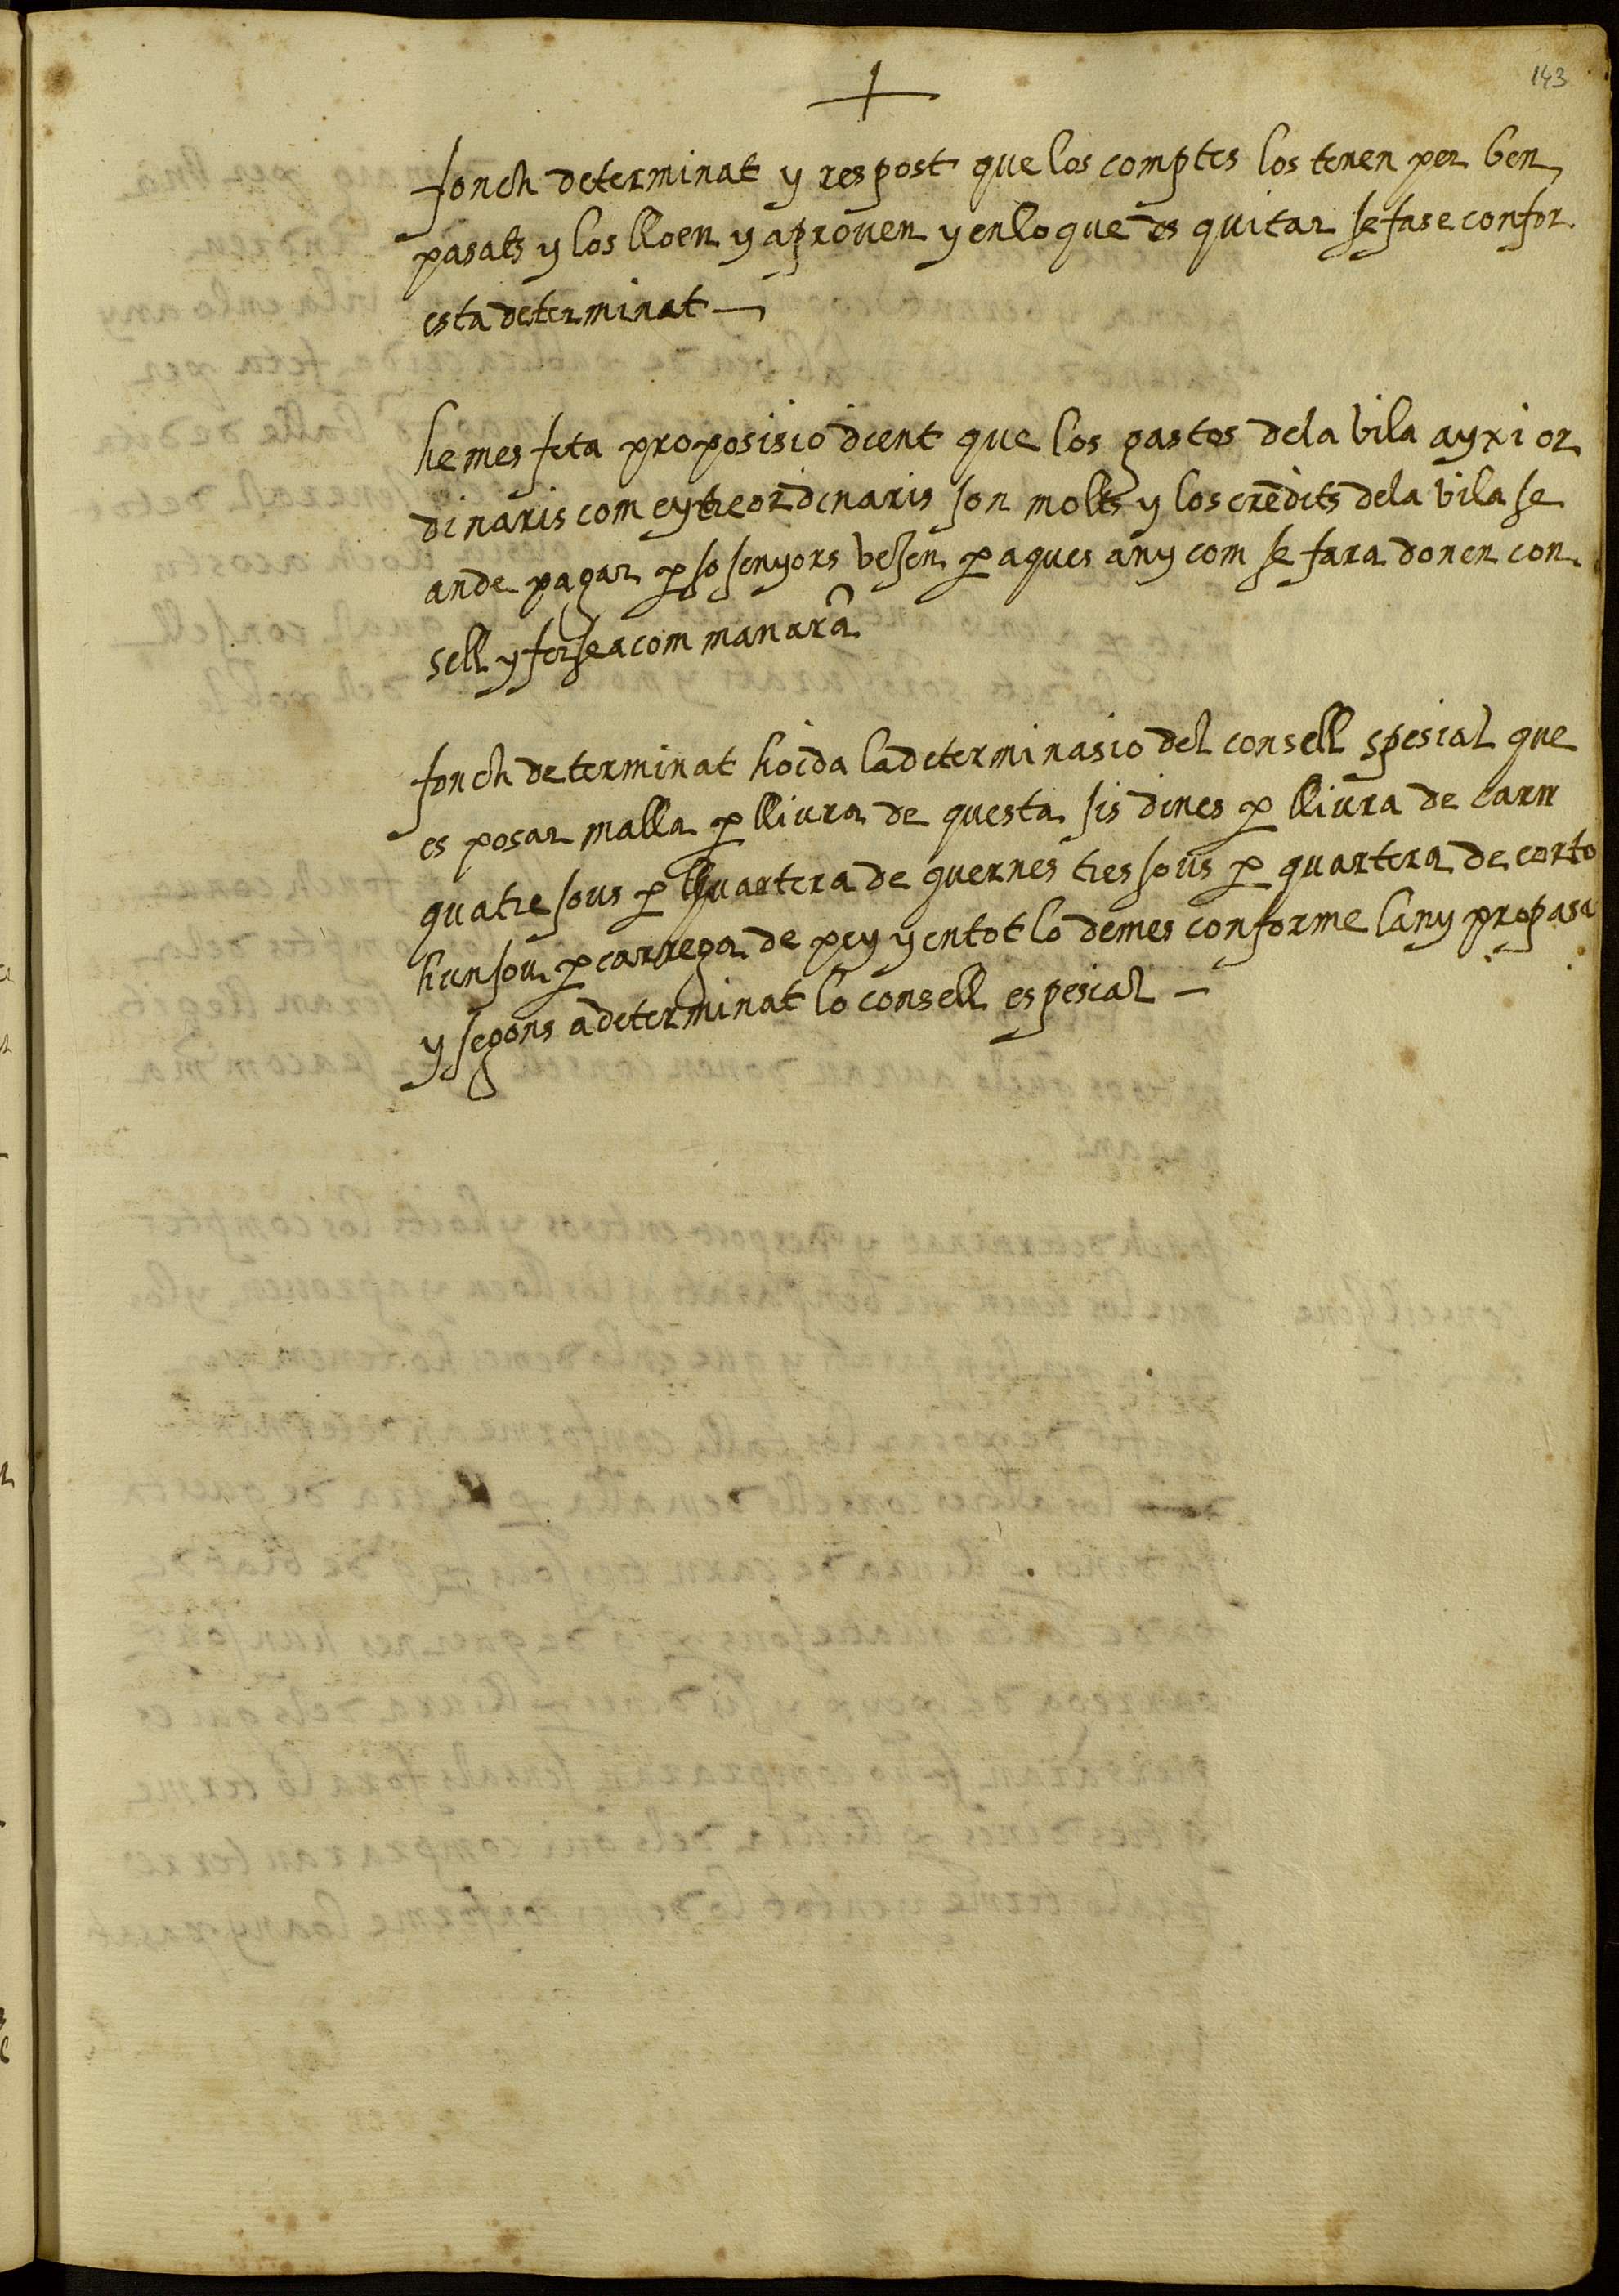 143
fonch determinat y respost que los comptes los tenen per ben
pasats y los lloen y aproven y en lo que es quitar se fase confor
esta determinat
he mes feta proposisio dient que los gastos de la vila ayxi or
dinaris com eytreordinaris son molts y los crèdits de la vila se
an de pagar p so senyors vejen p aques any com se fara donen con
sell y fersea com manarã
fonch determinat hoida la determinasio del consell spesial que
es posar malla p lliura de questa sis dines p lliura de carn
quatre sous p quartera de guernes tres sous p quartera de corto
hun sou p carrega de pey y en tot lo demes conforme lany propasa
y segons a determinat lo consell espesial